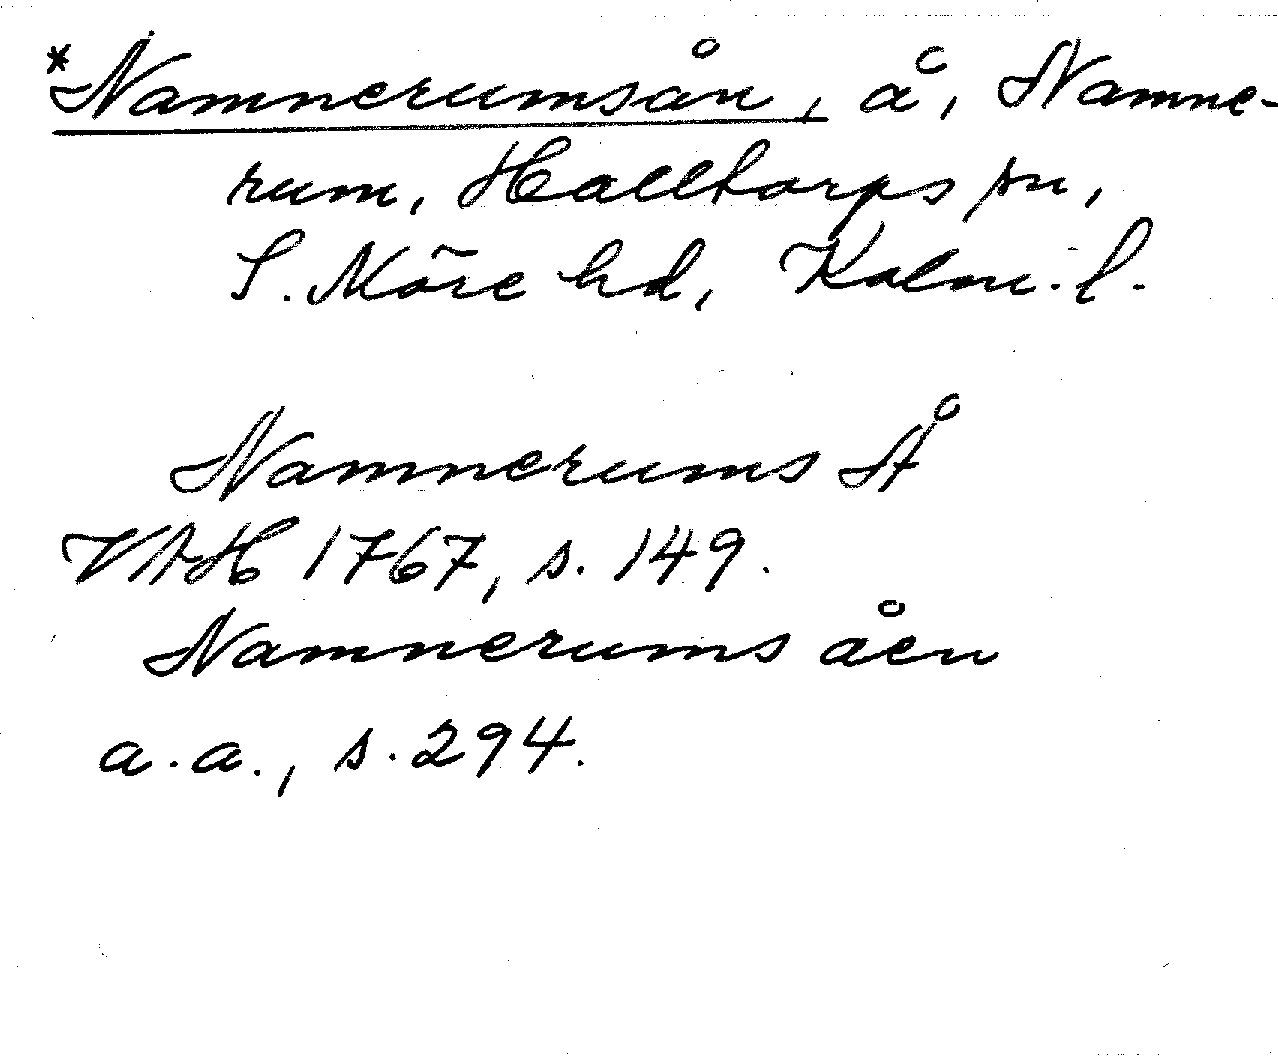 *Namnerumsån, å, Namne-
rum, Halltorps sn,
S. Möre hd, Kalm. l.
Namnerums Å
VAH 1767, s. 149.
Namnerums åen
a.a., s. 294.